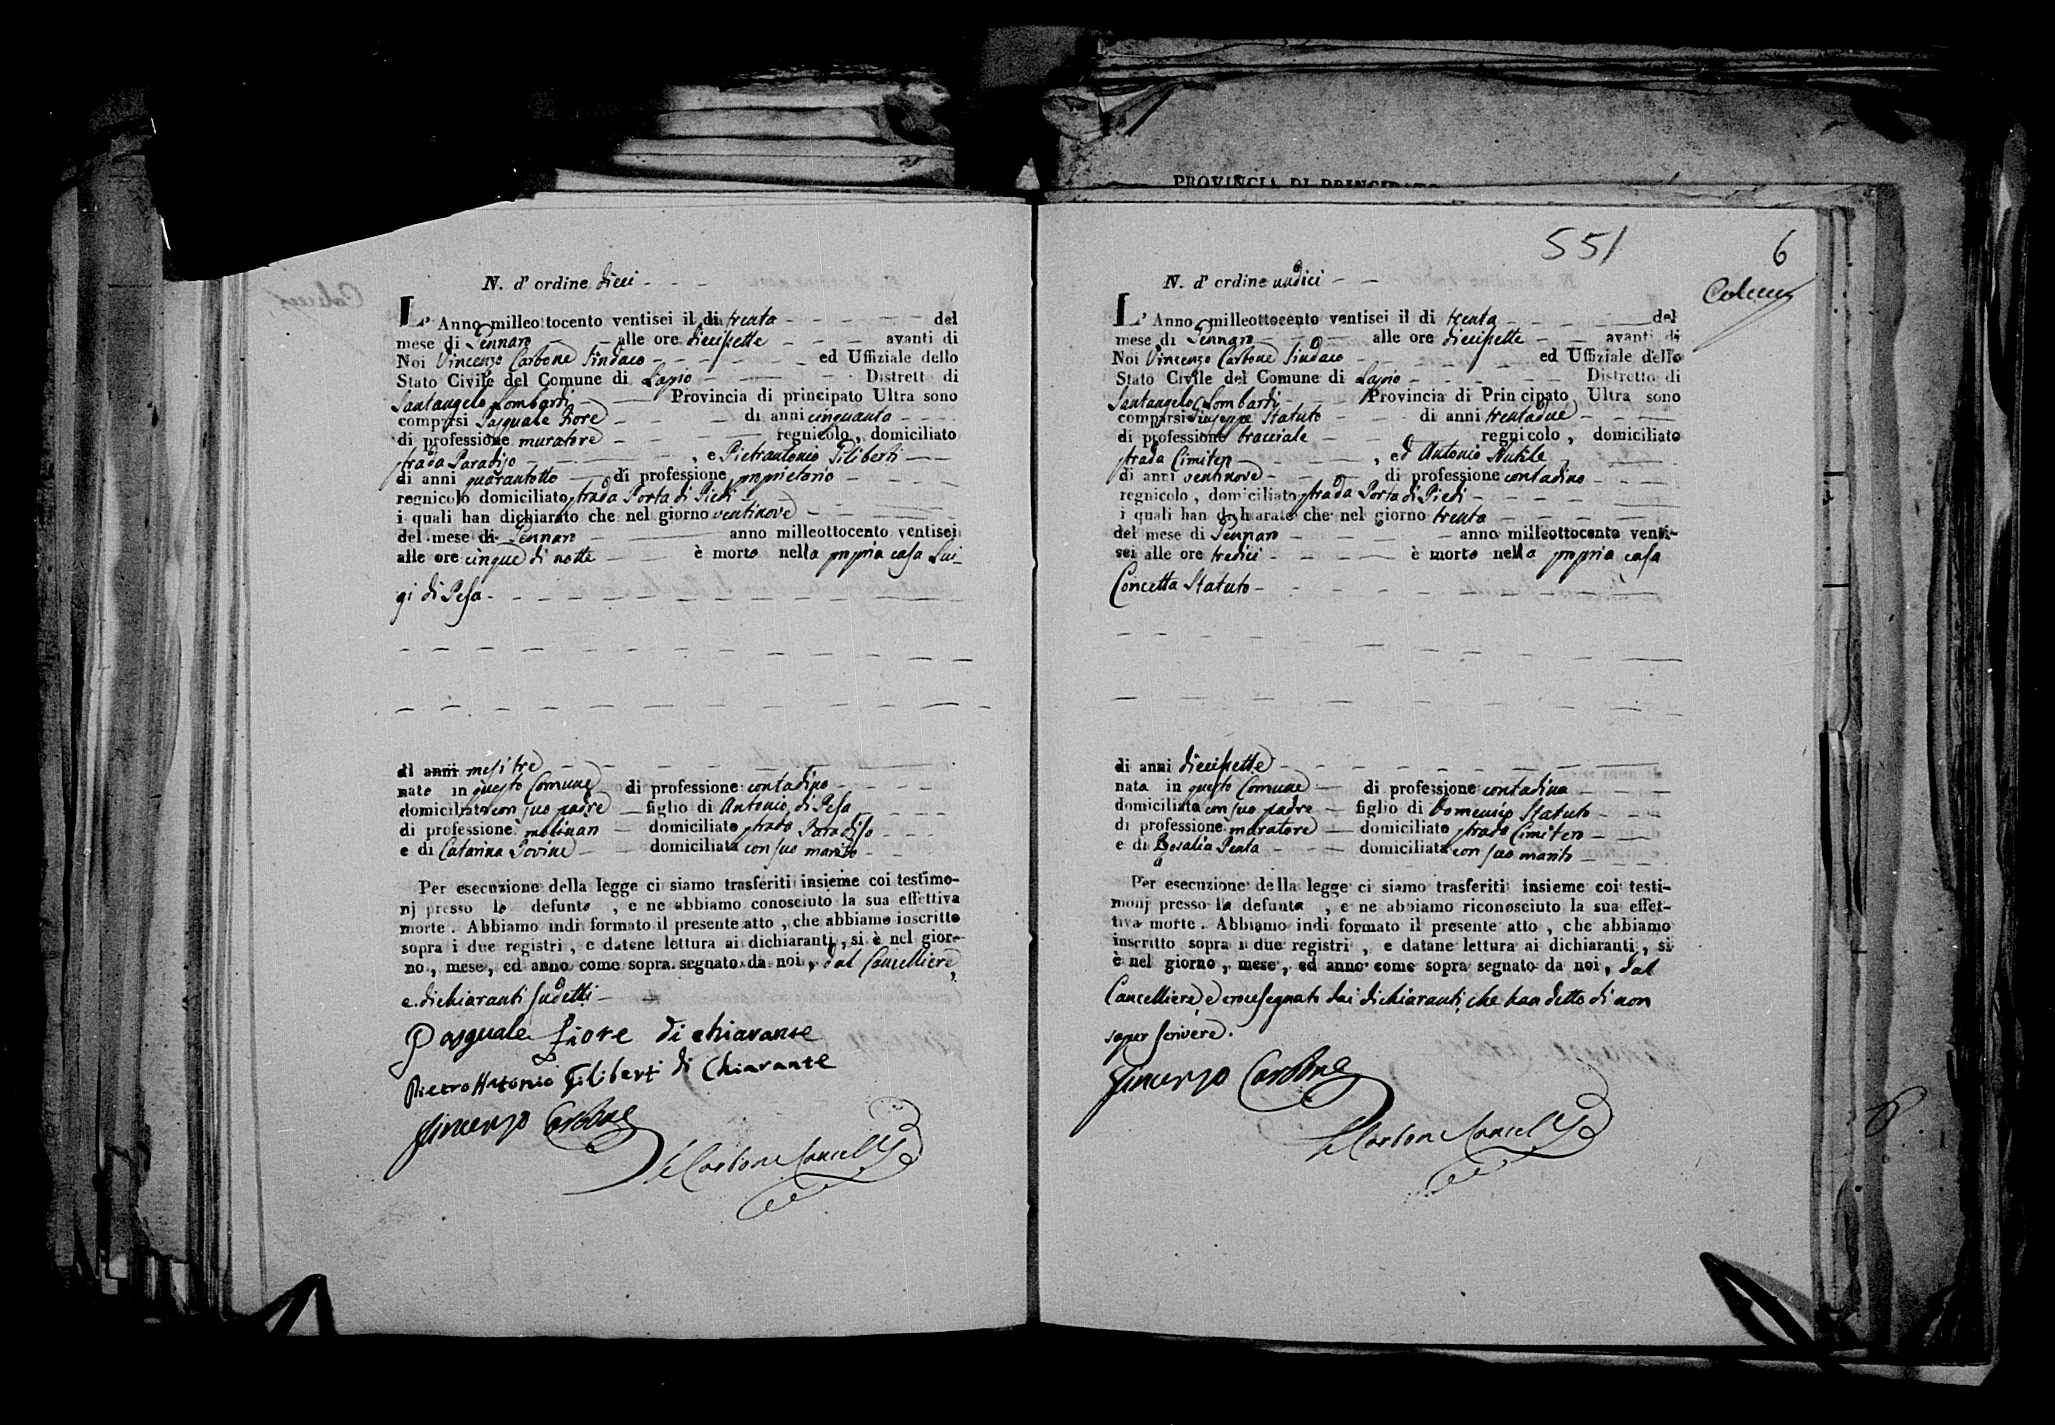 PROVINCIA DI PRINCIPATO
N. d' ordine dieci
L' Anno milleottocento ventisei il di trenta del
mese di Gennaro alle ore diecisette avanti di
Noi Vincenzo Carbone Sindaco ed Uffiziale dello
Stato Civile del Comune di Lapio Distretto di
Santangelo Lombardi Provincia di principato Ultra sono
comparsi Pasquale Fiore di anni cinquanta
di professione muratore regnicolo, domiciliato
strada Paradiso, e Pietrantonio Filiberti
di anni quarantotto di professione proprietario
regnicolo domiciliato strada Porta di Piedi
i quali han dichiarato che nel giorno ventinove
del mese di Gennaro anno milleottocento ventisei
alle ore cinque di notte è morto nella propria casa Lui-
gi di Pesa
di anni mesi tre
nato in questo Comune di professione contadino
domiciliato con suo padre figlio di Antonio di Pesa
di professione molinaro domiciliato strada Paradiso
e di Catarina Iovine domiciliata con suo marito
Per esecuzione della legge ci siamo trasferiti insieme coi testimo-
nj presso lo defunto, e ne abbiamo conosciuto la sua effettiva
morte. Abbiamo indi formato il presente atto, che abbiamo inscritto
sopra i due registri, e datene lettura ai dichiaranti, si è nel gior-
no, mese, ed anno come sopra segnato da noi, dal Cancelliere,
e dichiaranti sudetti
Pasquale Fiore di chiarante
Pietro Antonio Filiberti di Chiarante
Vincenzo Carbone
Carbone Cancell
551
6
N. d' ordine undici
L' Anno milleottocento ventisei il di trenta del
mese di Gennaro alle ore diecisette avanti di
Noi Vincenzo Carbone Sindaco ed Uffiziale dello
Stato Civile del Comune di Lapio Distretto di
Santangelo Lombardi Provincia di Principato Ultra sono
comparsi Giuseppe Statuto di anni trentadue
di professione bracciale regnicolo, domiciliato
strada Cimitero, ed Antonio Nutile
di anni ventinove di professione contadino
regnicolo, domiciliato strada Porta di Piedi
i quali han dichiarato che nel giorno trenta
del mese di Gennaro anno milleottocento venti-
sei alle ore tredici è morto nella propria casa
Concetta Statuto
di anni diecisette
nata in questo Comune di professione contadina
domiciliata con suo padre figlio di Domenico Statuto
di professione muratore domiciliato strada Cimitero
e di Rosalia Penta domiciliata con suo marito
Per esecuzione della legge ci siamo trasferiti insieme coi testi-
monj presso la defunta, e ne abbiamo riconosciuto la sua effet-
tiva morte. Abbiamo indi formato il presente atto, che abbiamo
inscritto sopra i due registri, e datane lettura ai dichiaranti, si
è nel giorno, mese, ed anno come sopra segnato da noi, dal
Cancelliere, e crocesegnato dai dichiaranti, che han detto di non
saper scrivere.
Vincenzo Carbone
Carbone Cancell